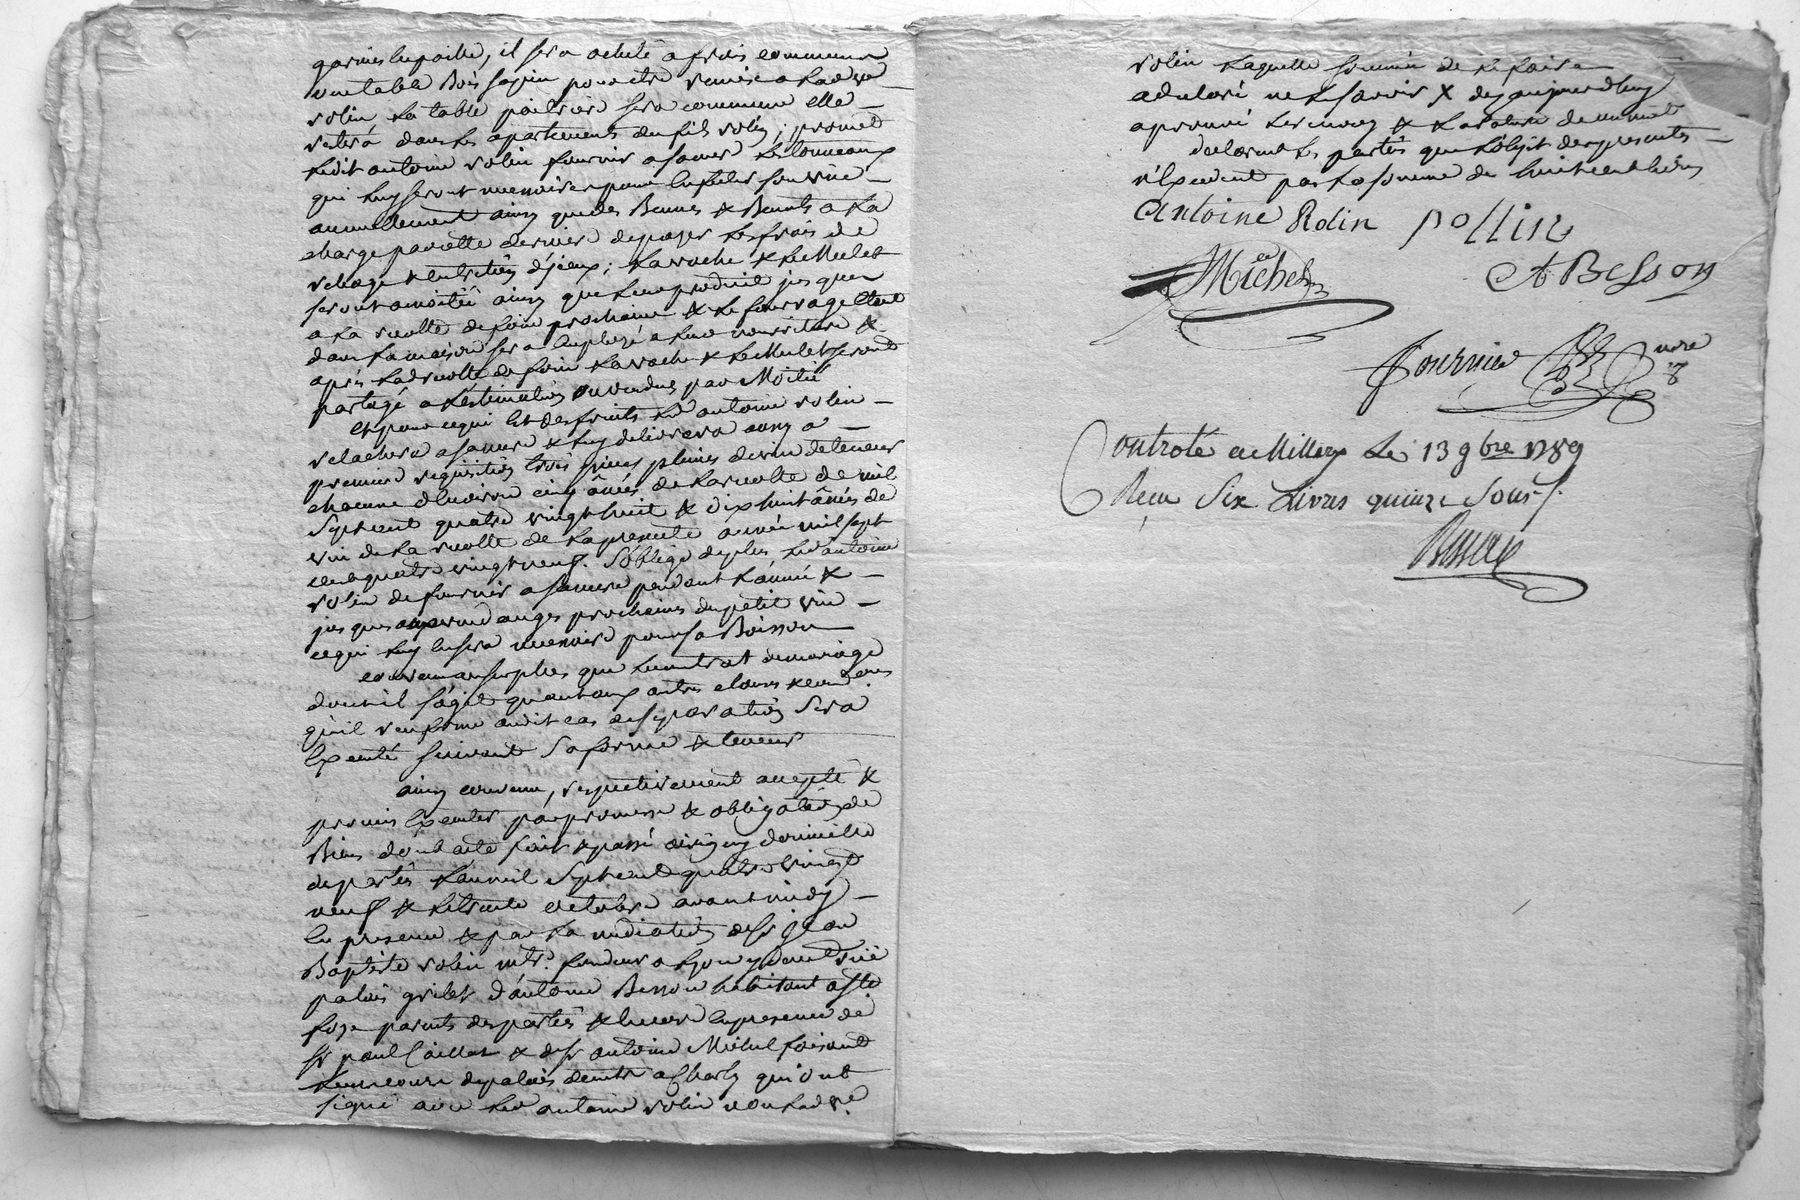 garnies de paille, il sera acheté a frais communs
une table Bois sapin pour etre remise a lad. ve
rolin la table paitriere sera commune elle
restera dans les apartements du fils rolin ; promet
ledit antoine rolin fournir a sa mere les tonneaux
qui luy seront necessaires pour
annuellement ainsy que les Bennes & Bennots a la
charge par cette derniere de payer les frais de
reliage & entretien d'iceux ; la vache & le Mulet
seront a moitié ainsy que leur produit jusques
a la recolte de foin prochaine & le fourrage etant
dans la maison sera employé a leur nourriture &
après lad. recolte de foin la vache & le Mulet seront
partagé a l'estimation ou vendus par Moitié
et pour ce qui est des fruits led antoine rolin
relachera a sa mere & luy delivrera aussy a
premiere requisition trois pieces pleines de vin de teneur
chacune d'environ cinq ânées de la recolte de mil
Sept cent quatre vingt huit & dix huit ânées de
vin de la recolte de la presente année mil sept
cent quatre vingt neuf. s'oblige de plus led antoine
rolin de fournir a sa mere pendant l'année &
jusques aux vendanges prochaines du petit vin
ce qui luy en sera necessaire pour sa Boisson
convenu au surplus que le contrat de mariage
dont il s'agit quant aux autres clauses & conditions
qu'il renferme audit cas de separation Sera
Executé suivant Sa forme & teneur
ainsy convenu, respectivement accepté &
promis Executer par promesse & obligation de
Biens dont acte fait & passé a irigny domicile
des parties l'an mil Sept cent quatre vingt
neuf & le trente octobre avant midy
En presence & par la mediation de Sr jean
Baptiste rolin mtre. fondeur a Lyon y demt rue
palais grillet d'antoine Besson habitant a Ste
foye parents des parties & encore en presence de
Sr paul Caillat & de Sr antoine Michel faisant
leur cours de palais demt a Charly qui ont
signé avec led antoine rolin non lad. ve
rolin laquelle sommée de le faire
a declaré ne le savoir & des aujourd'huy
aprouvé & la rature de un mot
declarent les parties que l'objet des presentes
n'Excedent pas la somme de huit cent livres
Antoine Rolin rollin
Michel A Besson
Fournier nore
Controlé a Millery Le 13 9bre 1789
Recu Six Livres quinze Sous